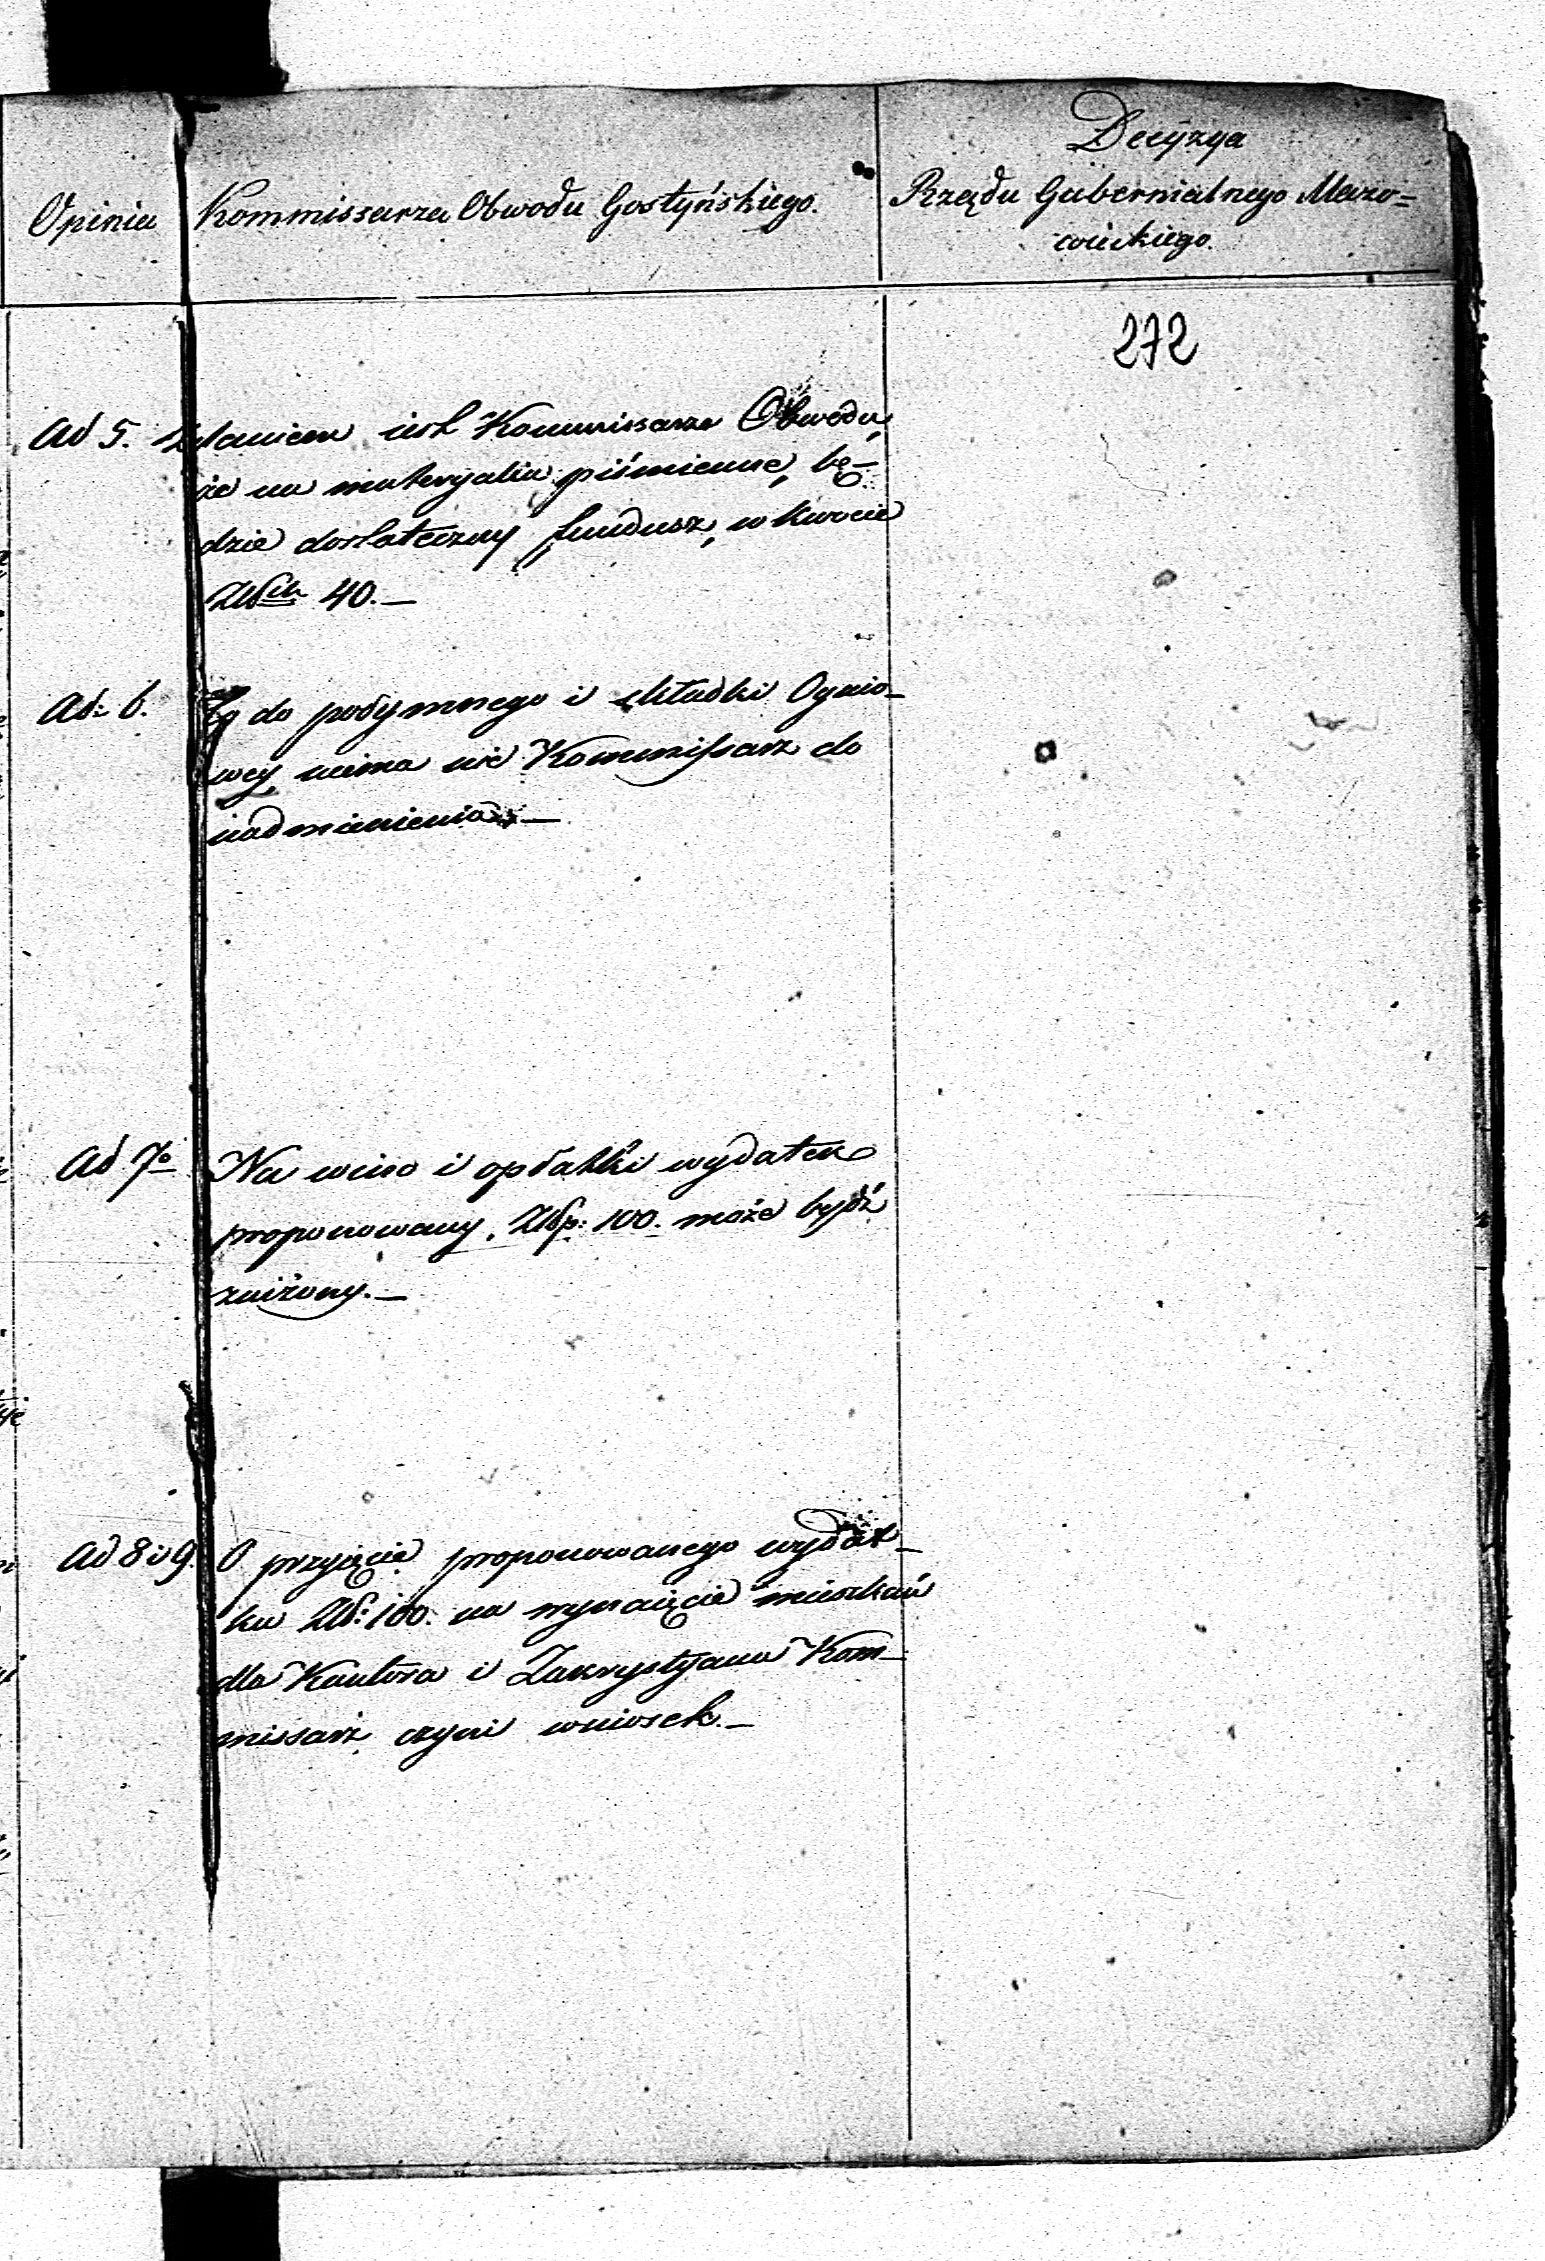 Opinia Kommissarza Obwodu Gostyńskiego.
Decyzya
Rządu Gubernialnego Mazo=
wieckiego.
272
Ad 5. Zdaniem iest Kommissarza Obwodu,
że na materyalia piśmienne, bę-
dzie dostateczny fundusz, w kwocie
Złych 40.—
Ad: 6. Co do podymnego i składki Ognio-
wey, niema nic Kommissarz do
nadmienienia.—
Ad 7o Na wino i opłatki wydatek
proponowany Złp: 100. może bydź
zniżony.—
Ad 8 i 9. O przyięcie proponowanego wydat-
ku Zł: 100. na wynaięcie mieszkań
dla Kantora i Zakrystyana Kom-
missarz czyni wniosek.—